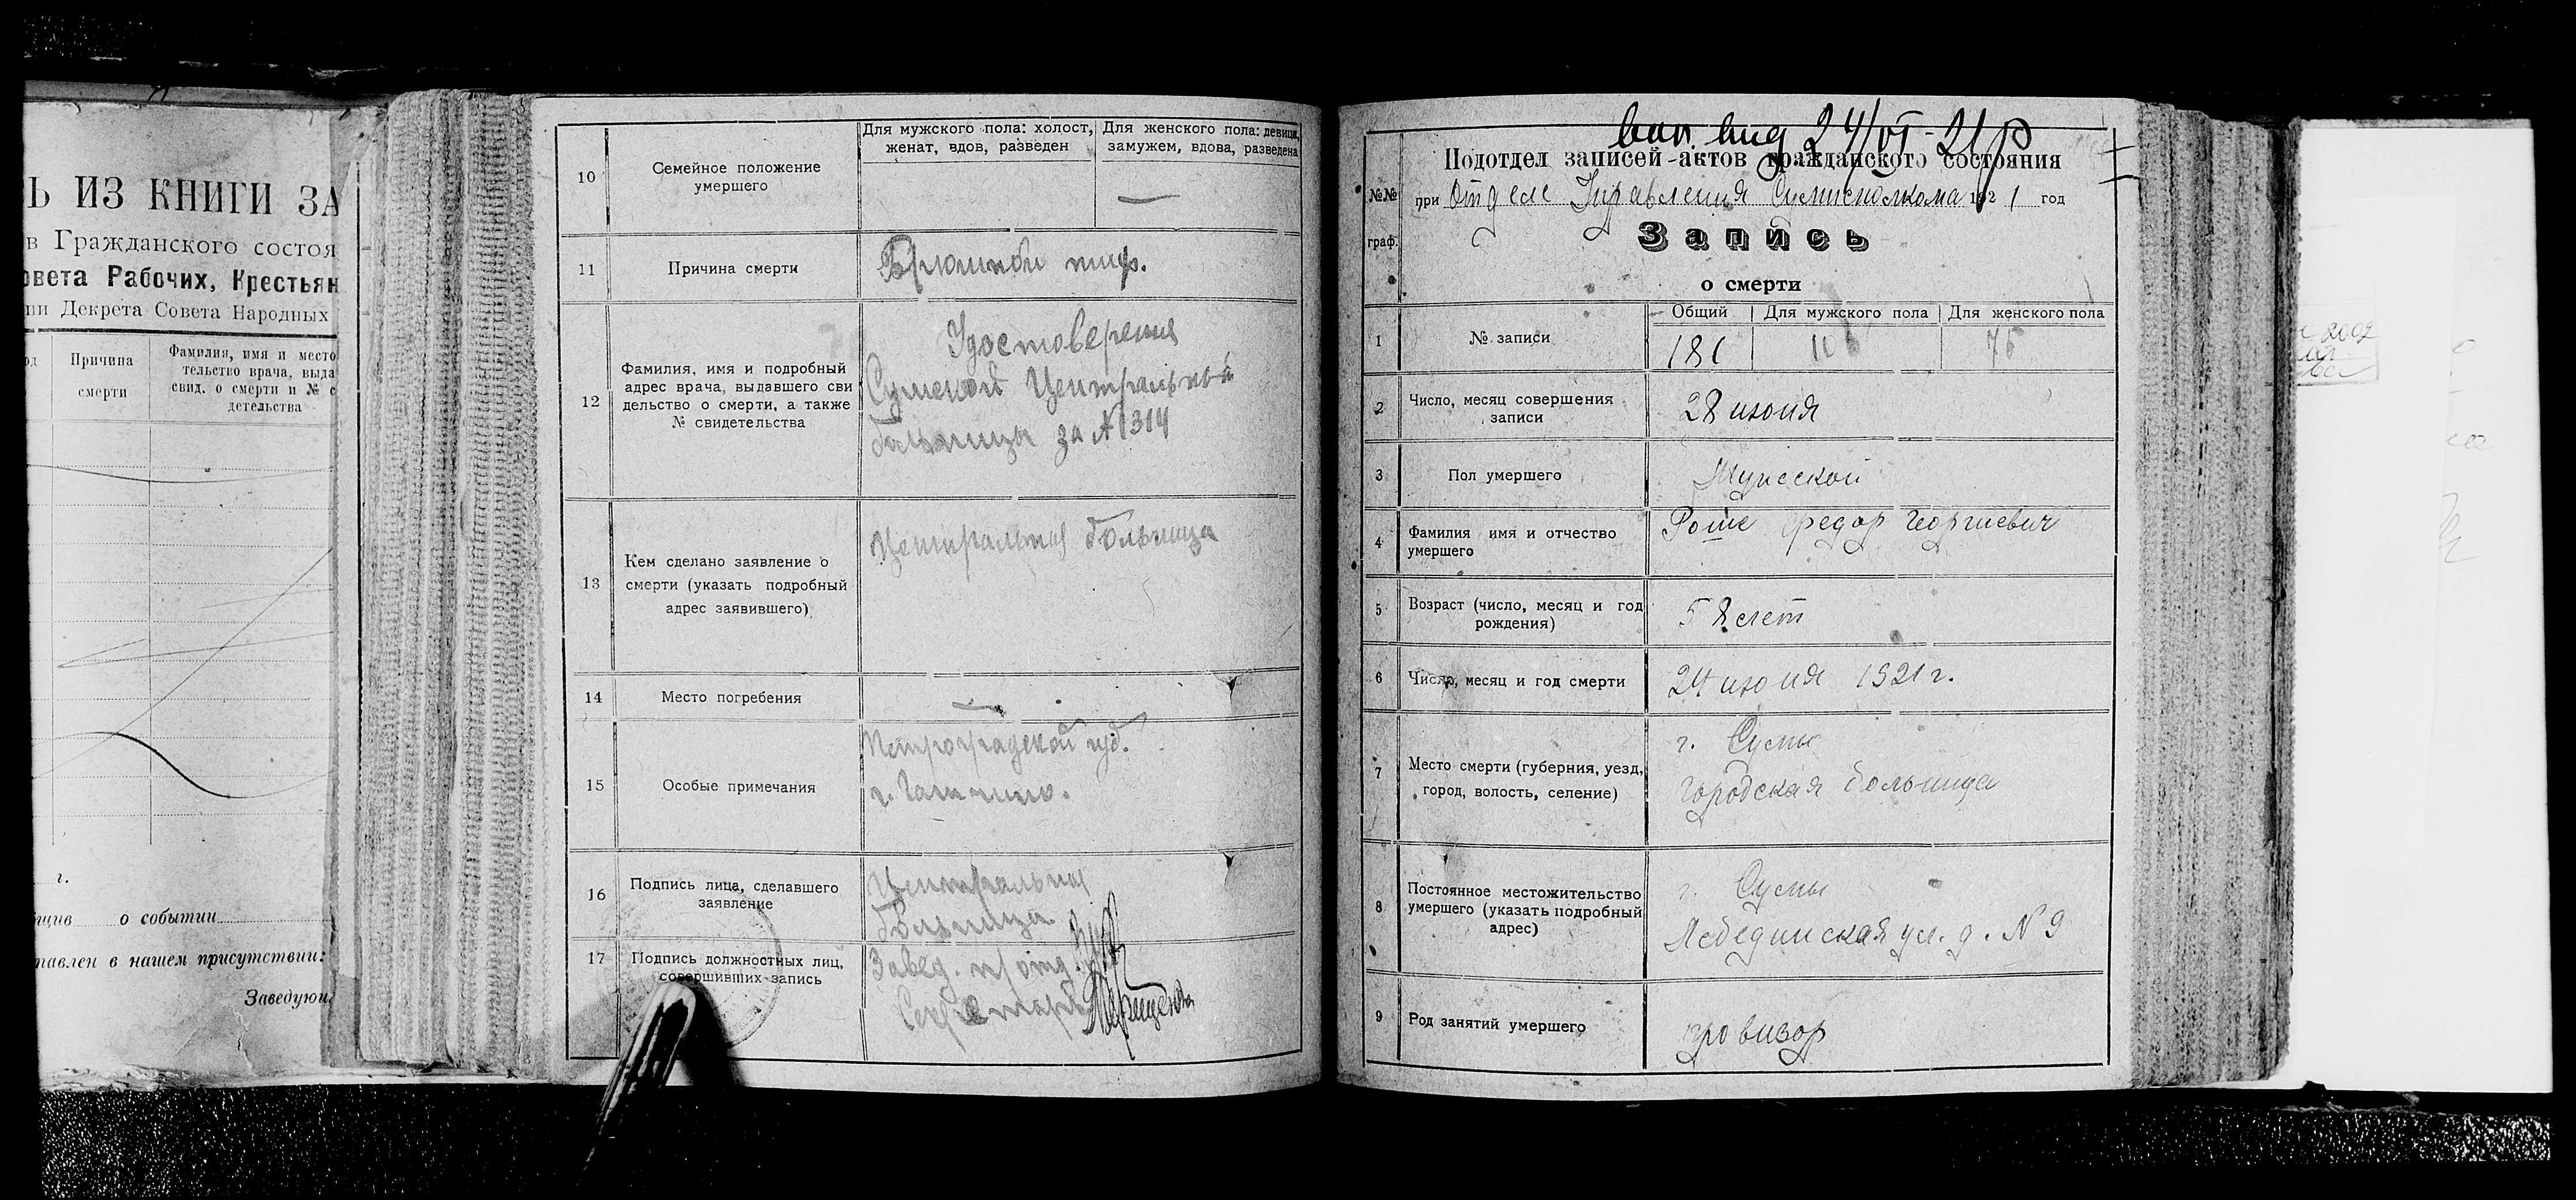 Ь ИЗ КНИГИ ЗА
в Гражданского состоя
овета Рабочих, Крестьян
ии Декрета Совета Народных
од
Причина
смерти
Фамилия, имя и место
тельство врача, выда
свид. о смерти и № с
детельства
г.
бщив о событии
тавлен в нашем присутствии:
Заведующ
10
Семейное положение
умершего
Для мужского пола: холост,
женат, вдов, разведен
Для женского пола: девица,
замужем, вдова, разведена
—
11
Причина смерти
Брюшной тиф.
12
Фамилия, имя и подробный
адрес врача, выдавшего сви
дельство о смерти, а также
№ свидетельства
Удостоверения
Сумской Центральной
больницы за №1314
13
Кем сделано заявление о
смерти (указать подробный
адрес заявившего)
Центральная больница
14
Место погребения
—
15
Особые примечания
Петроградской губ.
г. Гатчино.
16
Подпись лица, сделавшего
заявление
Центральная
больница
17
Подпись должностных лиц,
совершивших запись
Завед. п/отд.
Секретарь
24/VI-21р
Подотдел записей-актов гражданского состояния
№№
граф.
при Отделе Управления Сумисполкома 1921 год
Запись
о смерти
1
№ записи
Общий
Для мужского пола
Для женского пола
181
106
75
2
Число, месяц совершения
записи
28 июня
3
Пол умершего
Мужской
4
Фамилия имя и отчество
умершего
Роше Федор Георгиевич
5
Возраст (число, месяц и год
рождения)
58 лет
6
Число, месяц и год смерти
24 июня 1921 г.
7
Место смерти (губерния, уезд,
город, волость, селение)
г. Сумы
городская больница
8
Постоянное местожительство
умершего (указать подробный
адрес)
г. Сумы
Лебединская ул. д. № 9
9
Род занятий умершего
провизор